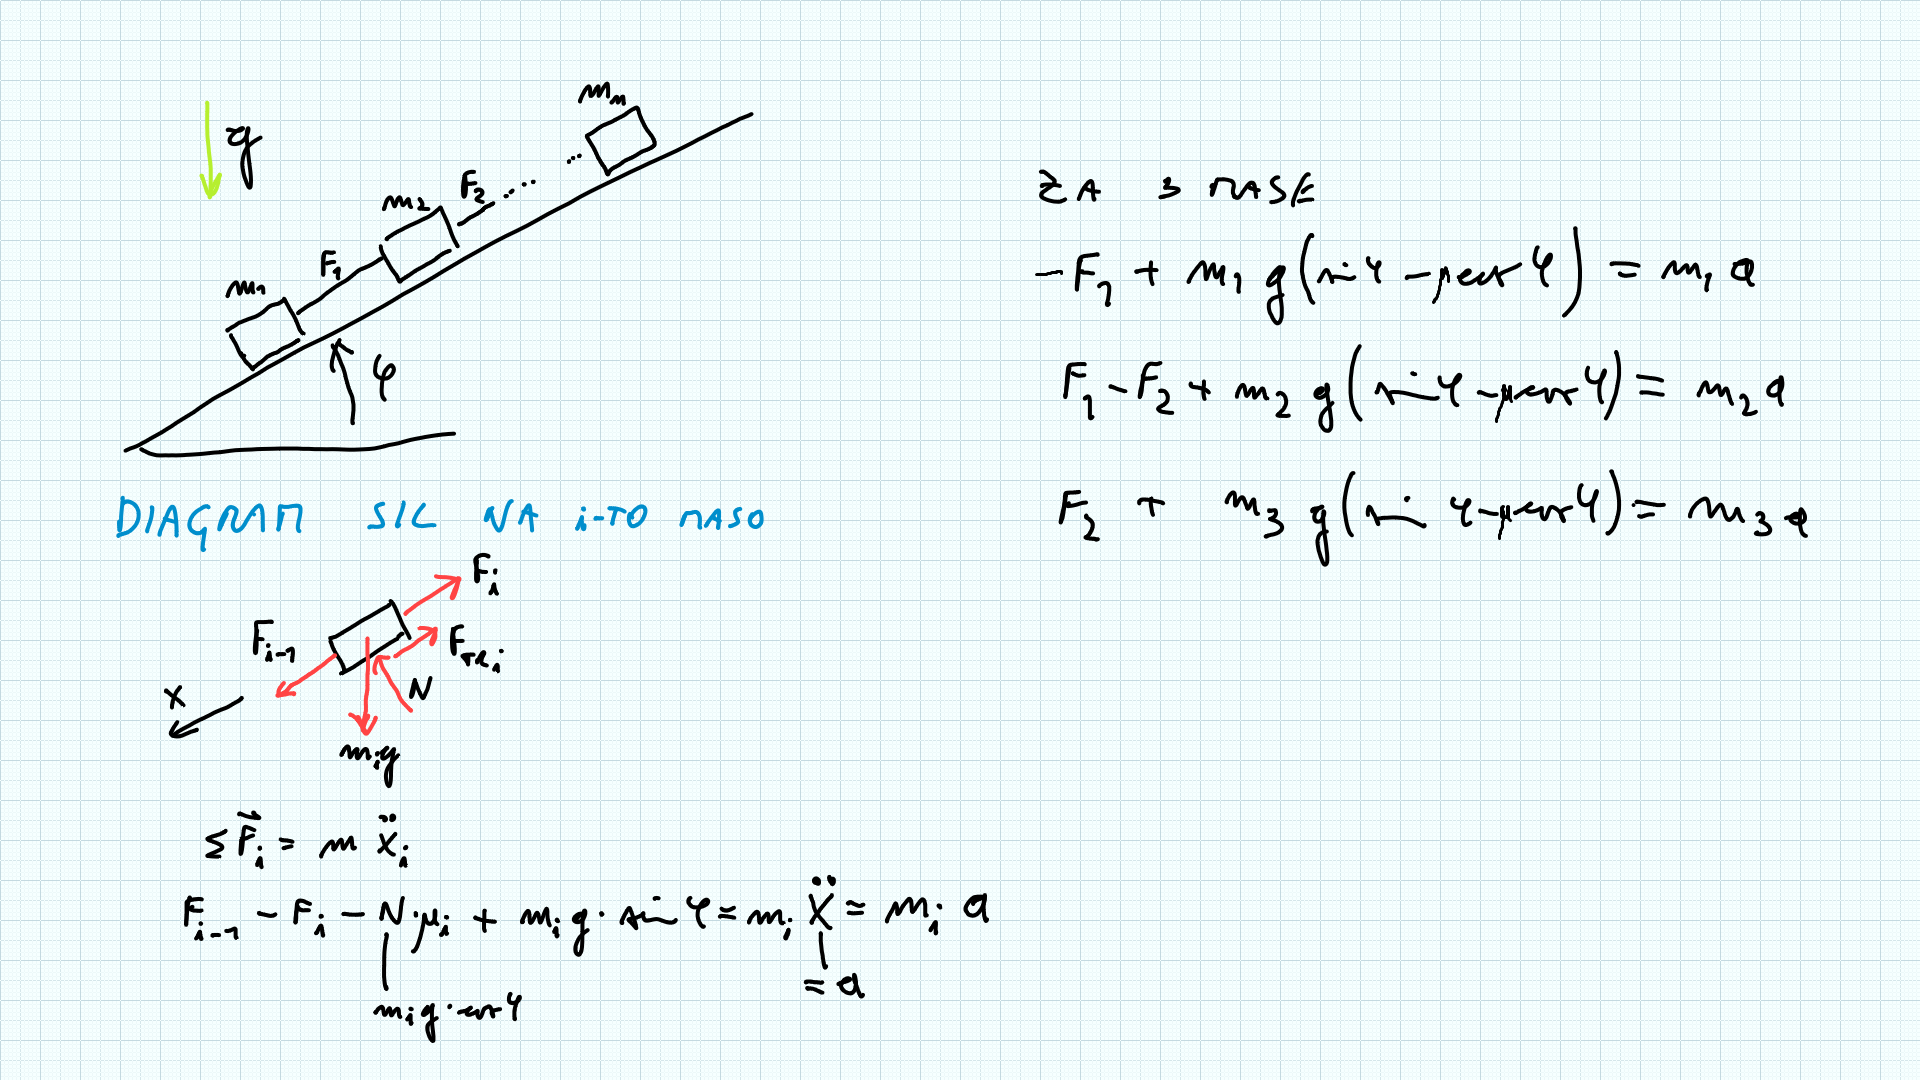 g
m₁
F₁
m₂
F₂ ....
... mₙ
φ
DIAGRAM SIL NA i-TO MASO
Fᵢ
Fᵢ₋₁
F_TRᵢ
N
X
mᵢg
ΣF⃗ᵢ = m ẍᵢ
Fᵢ₋₁ - Fᵢ - N·μᵢ + mᵢg·sin φ = mᵢ ẍ = mᵢ a
= a
mᵢg·cos φ
ZA 3 MASE
-F₁ + m₁ g(sin φ - μcos φ) = m₁ a
F₁ - F₂ + m₂ g(sin φ - μcos φ) = m₂ a
F₂ + m₃ g(sin φ - μcos φ) = m₃ a